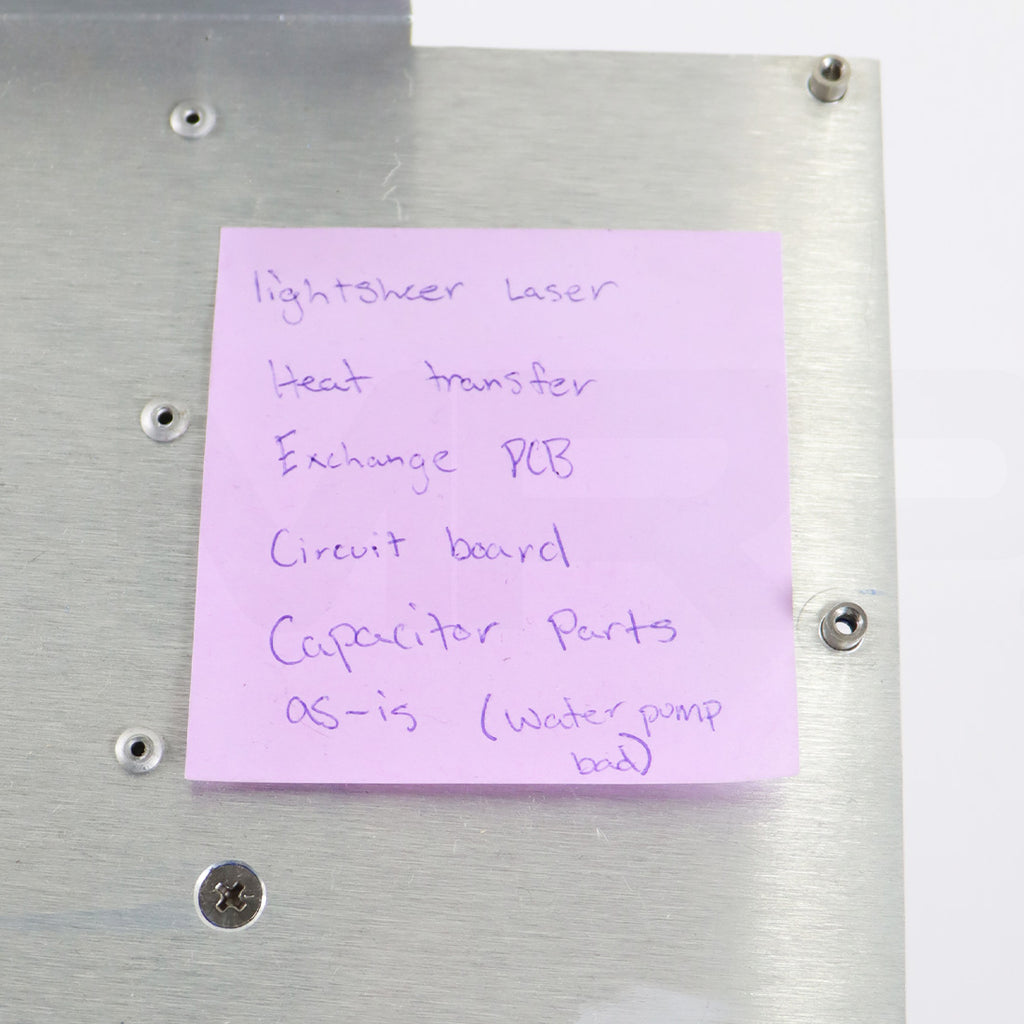 lightsheer Laser
Heat transfer
Exchange PCB
Circuit board
Capacitor Parts
as-is (water pump
bad)